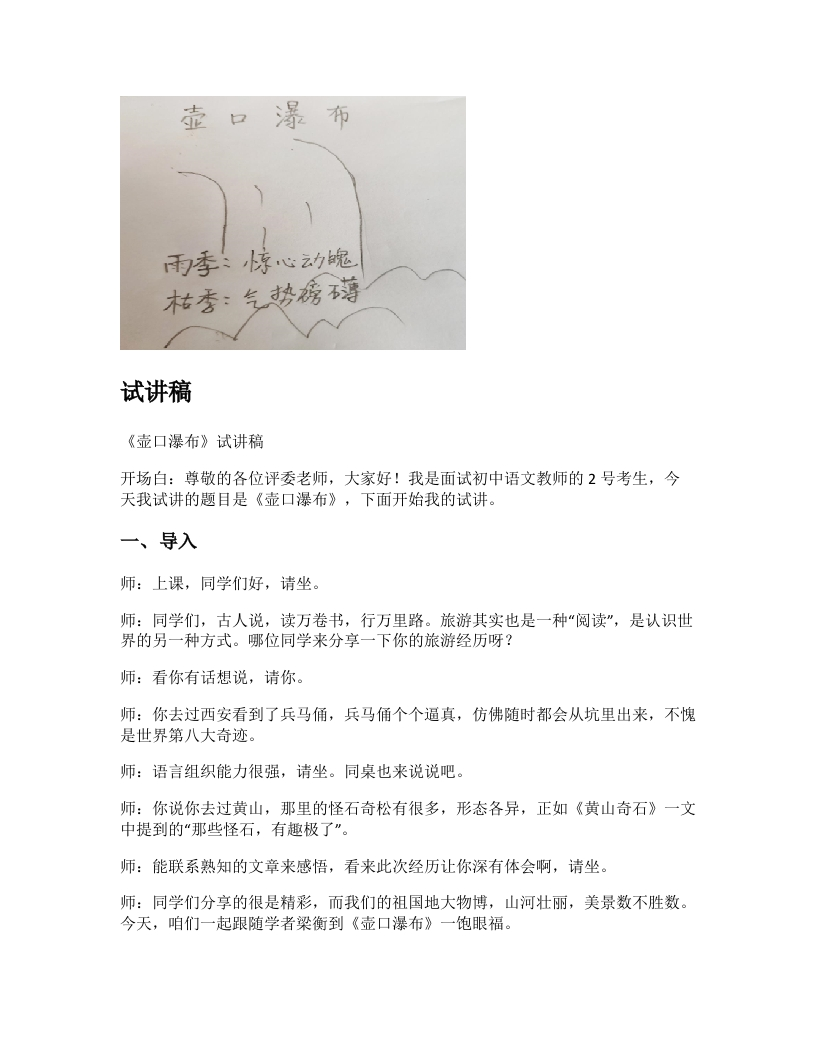 壶口瀑布
雨季：惊心动魄
枯季：气势磅礴
试讲稿
《壶口瀑布》试讲稿
开场白：尊敬的各位评委老师，大家好！我是面试初中语文教师的 2 号考生，今
天我试讲的题目是《壶口瀑布》，下面开始我的试讲。
一、导入
师：上课，同学们好，请坐。
师：同学们，古人说，读万卷书，行万里路。旅游其实也是一种“阅读”，是认识世
界的另一种方式。哪位同学来分享一下你的旅游经历呀？
师：看你有话想说，请你。
师：你去过西安看到了兵马俑，兵马俑个个逼真，仿佛随时都会从坑里出来，不愧
是世界第八大奇迹。
师：语言组织能力很强，请坐。同桌也来说说吧。
师：你说你去过黄山，那里的怪石奇松有很多，形态各异，正如《黄山奇石》一文
中提到的“那些怪石，有趣极了”。
师：能联系熟知的文章来感悟，看来此次经历让你深有体会啊，请坐。
师：同学们分享的很是精彩，而我们的祖国地大物博，山河壮丽，美景数不胜数。
今天，咱们一起跟随学者梁衡到《壶口瀑布》一饱眼福。